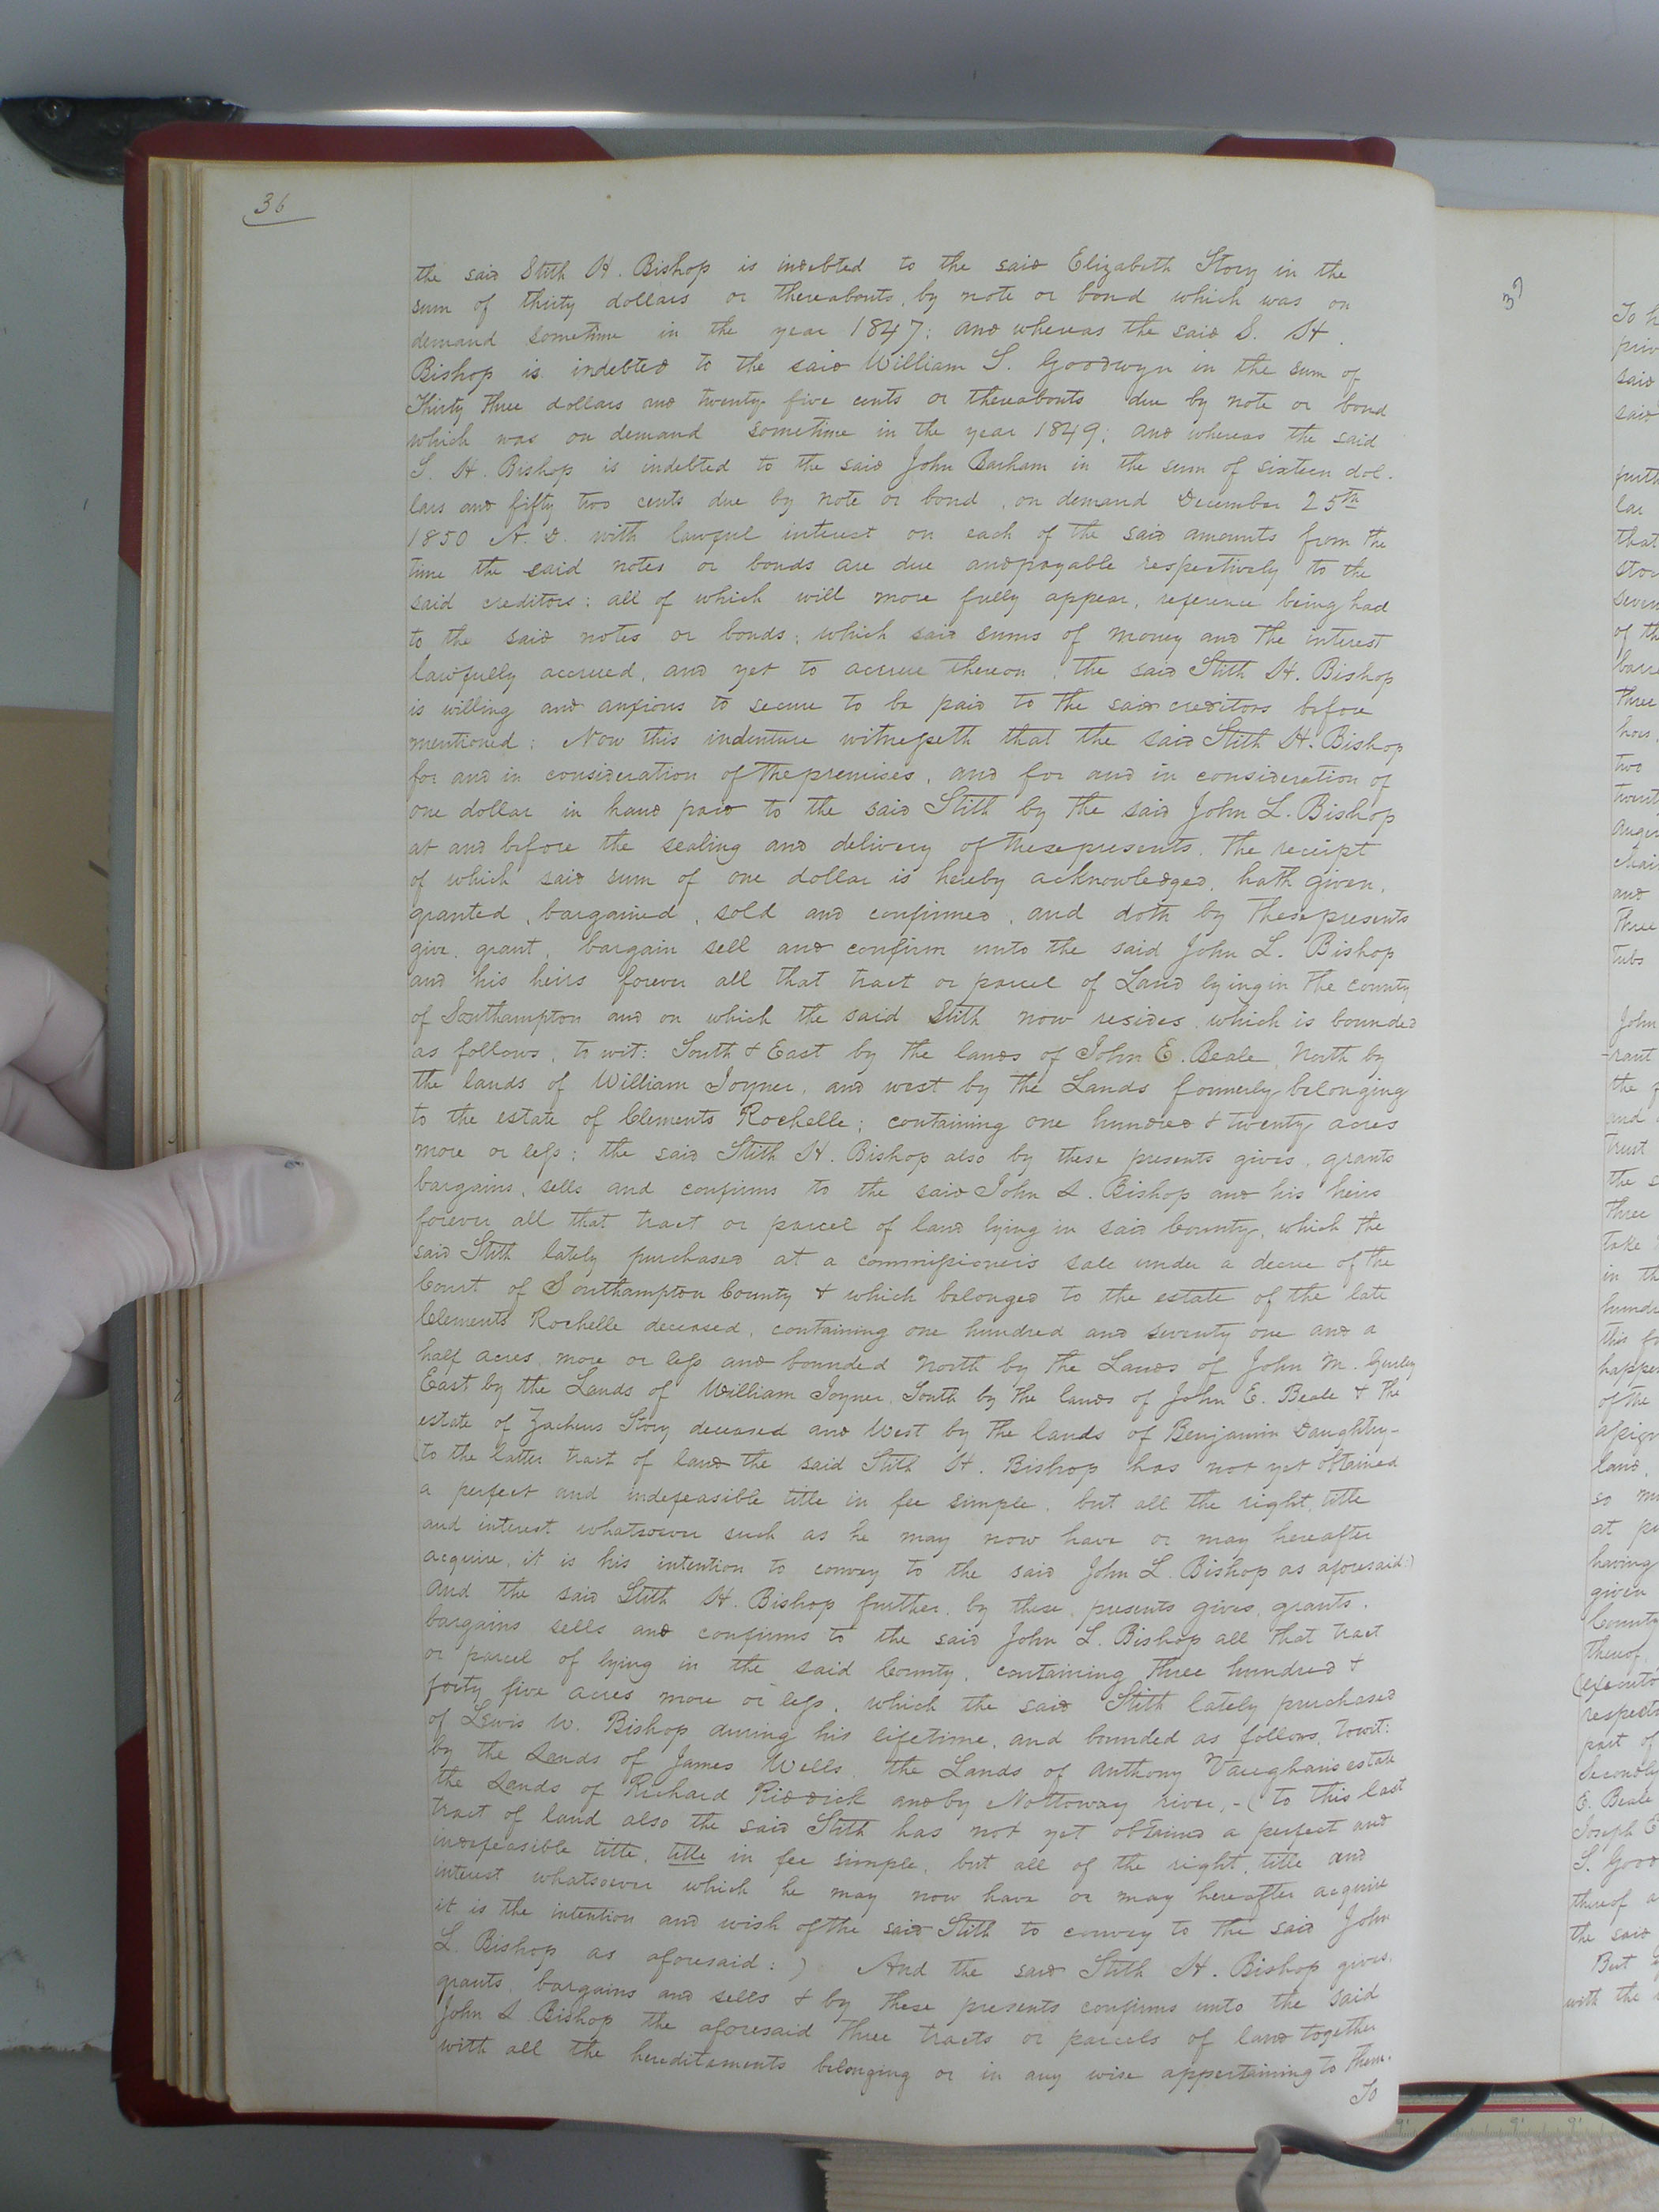 36
the said Stith H. Bishop is indebted to the said Elizabeth Story in the
sum of thirty dollars or thereabouts, by note or bond which was on
demand sometime in the year 1847; and whereas the said S. H.
Bishop is indebted to the said William S. Goodwyn in the sum of
Thirty three dollars and twenty five cents or thereabouts due by note or bond
which was on demand sometime in the year 1849; and whereas the said
S. H. Bishop is indebted to the said John Barham in the sum of sixteen dol-
lars and fifty two cents due by note or bond, on demand December 25th
1850 A. D. with lawful interest on each of the said amounts from the
time the said notes or bonds are due and payable respectively to the
said creditors: all of which will more fully appear, reference being had
to the said notes or bonds; which said sums of money and the interest
lawfully accrued, and yet to accrue thereon, the said Stith H. Bishop
is willing and anxious to secure to be paid to the said creditors before
mentioned; Now this indenture witnesseth that the said Stith H. Bishop
for and in consideration of the premises, and for and in consideration of
one dollar in hand paid to the said Stith by the said John L. Bishop
at and before the sealing and delivery of these presents, the receipt
of which said sum of one dollar is hereby acknowledged, hath given,
granted, bargained, sold and confirmed, and doth by these presents
give, grant, bargain sell and confirm unto the said John L. Bishop
and his heirs forever all that tract or parcel of Land lying in the county
of Southampton and on which the said Stith now resides, which is bounded
as follows, to wit: South & East by the lands of John E. Beale, North by
the lands of William Joyner, and west by the Lands formerly belonging
to the estate of Clements Rochelle; containing one hundred & twenty acres
more or less; the said Stith H. Bishop also by these presents gives, grants
bargains, sells and confirms to the said John L. Bishop and his heirs
forever all that tract or parcel of land lying in said County, which the
said Stith lately purchased at a commissioner's sale under a decree of the
Court of Southampton County & which belonged to the estate of the late
Clements Rochelle deceased, containing one hundred and seventy one and a
half acres, more or less and bounded North by the Lands of John M. Gurley
East by the Lands of William Joyner, South by the lands of John E. Beale & the
estate of Zacheus Story deceased and West by the lands of Benjamin Daughtry-
(to the latter tract of land the said Stith H. Bishop has not yet obtained
a perfect and indefeasible title in fee simple, but all the right, title
and interest whatsoever such as he may now have or may hereafter
acquire, it is his intention to convey to the said John L. Bishop as aforesaid:)
and the said Stith H. Bishop further, by these, presents gives, grants,
bargains sells and confirms to the said John L. Bishop all that tract
or parcel of lying in the said County, containing three hundred &
forty five acres more or less, which the said Stith lately purchased
of Lewis W. Bishop during his lifetime, and bounded as follows, towit:
by the Lands of James Wells, the Lands of Anthony Vaughan's estate
the Lands of Richard Riddick and by Nottoway river, - (to this last
tract of land also the said Stith has not yet obtained a perfect and
indefeasible title, title in fee simple, but all of the right, title and
interest whatsoever which he may now have or may hereafter acquire
it is the intention and wish of the said Stith to convey to the said John
L. Bishop as aforesaid:) And the said Stith H. Bishop gives,
grants, bargains and sells & by these presents confirms unto the said
John L Bishop the aforesaid three tracts or parcels of land together
with all the hereditaments belonging or in any wise appertaining to them.
To
37
To h
said
said
lar
that
of th
three
two
and
Three
tubs
John
the
trust
the s
three
take
in th
of the
land,
so
at p
having
given
County
thereof,
part of
E. Beale
Joseph E
S. Good
thereof a
the said
But
with the